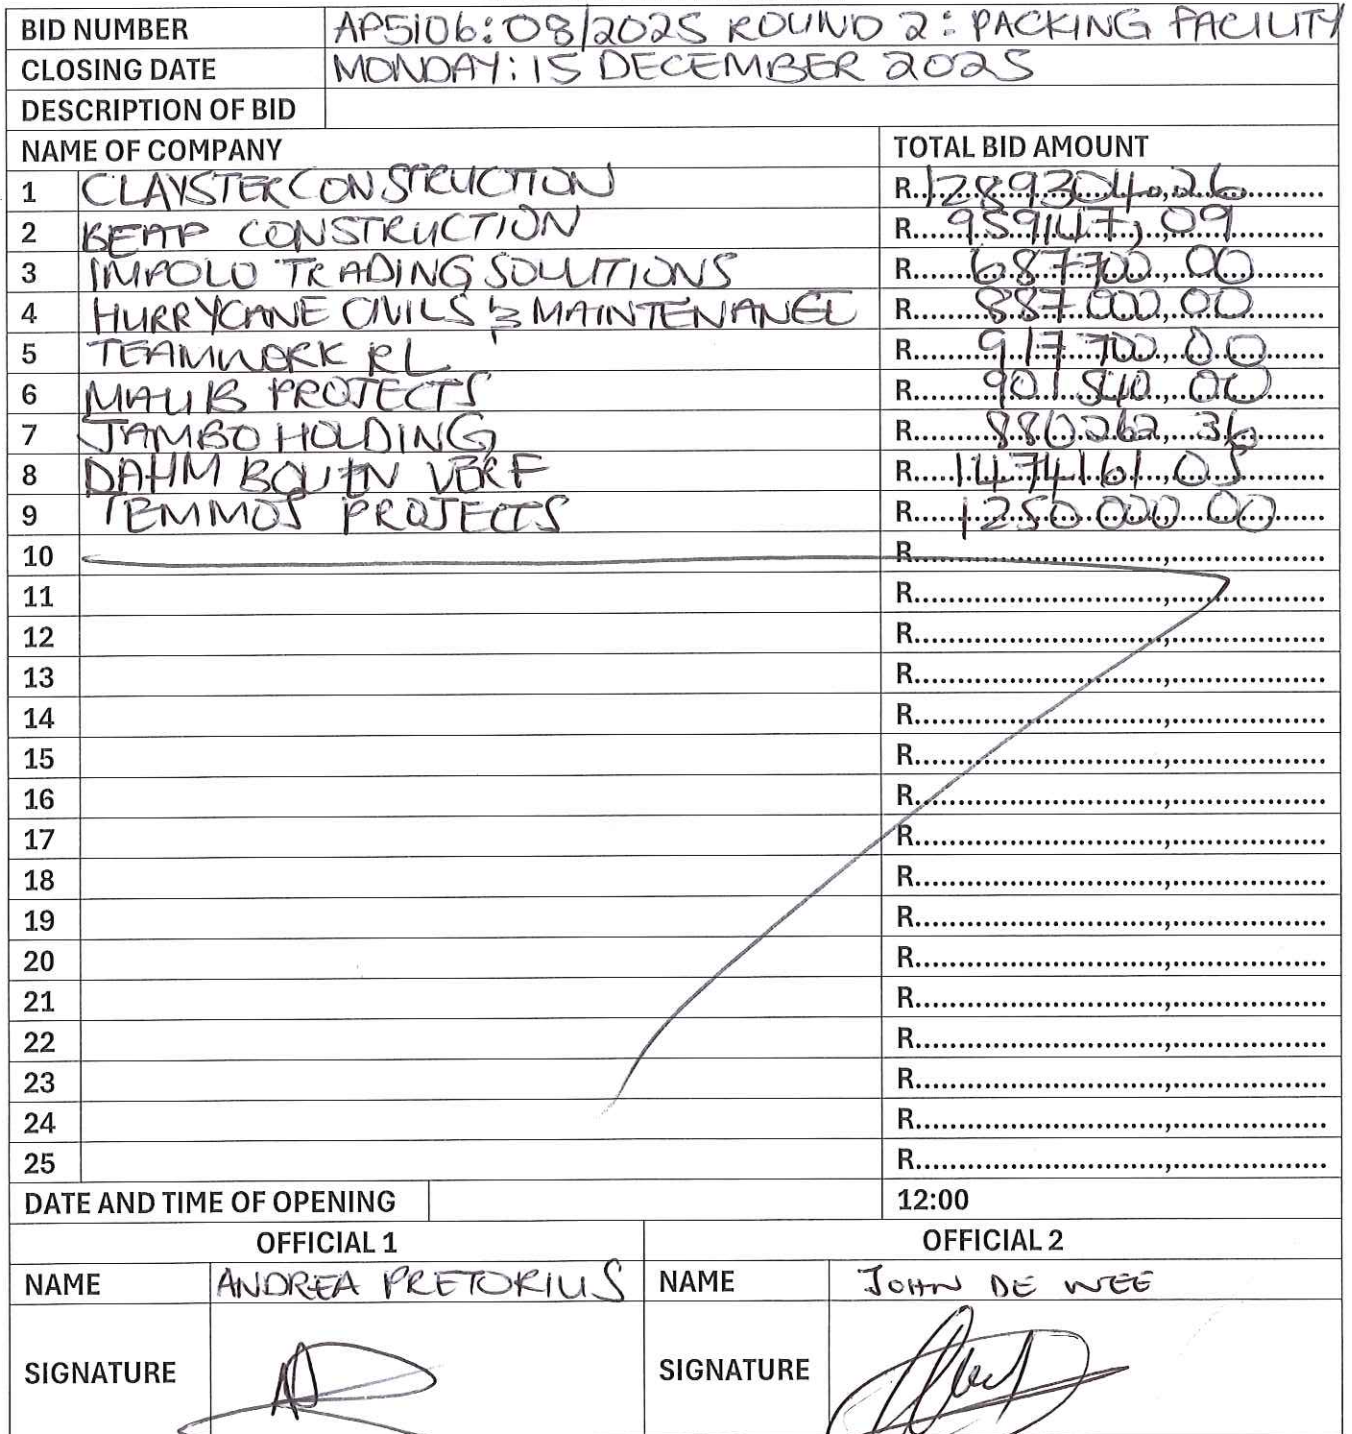 BID NUMBER AP5106:08/2025 ROUND 2: PACKING FACILITY
CLOSING DATE MONDAY: 15 DECEMBER 2025
DESCRIPTION OF BID
NAME OF COMPANY TOTAL BID AMOUNT
1 CLAYSTER CONSTRUCTION R 1289304,26
2 BEAP CONSTRUCTION R 959147,09
3 IMPOLO TRADING SOLUTIONS R 687700,00
4 HURRYCANE CIVILS & MAINTENANCE R 887 000,00
5 TEAMWORK RL R 917 700,00
6 PROJECTS R 901 540,00
7 JAMBO HOLDING R 880262,36
8 DAHM R 1474161,05
9 TEMMOS PROJECTS R 1250 000,00
10 R..............................,..................
11 R..............................,..................
12 R..............................,..................
13 R..............................,..................
14 R..............................,..................
15 R..............................,..................
16 R..............................,..................
17 R..............................,..................
18 R..............................,..................
19 R..............................,..................
20 R..............................,..................
21 R..............................,..................
22 R..............................,..................
23 R..............................,..................
24 R..............................,..................
25 R..............................,..................
DATE AND TIME OF OPENING 12:00
OFFICIAL 1 OFFICIAL 2
NAME ANDREA PRETORIUS NAME JOHN DE WEE
SIGNATURE SIGNATURE